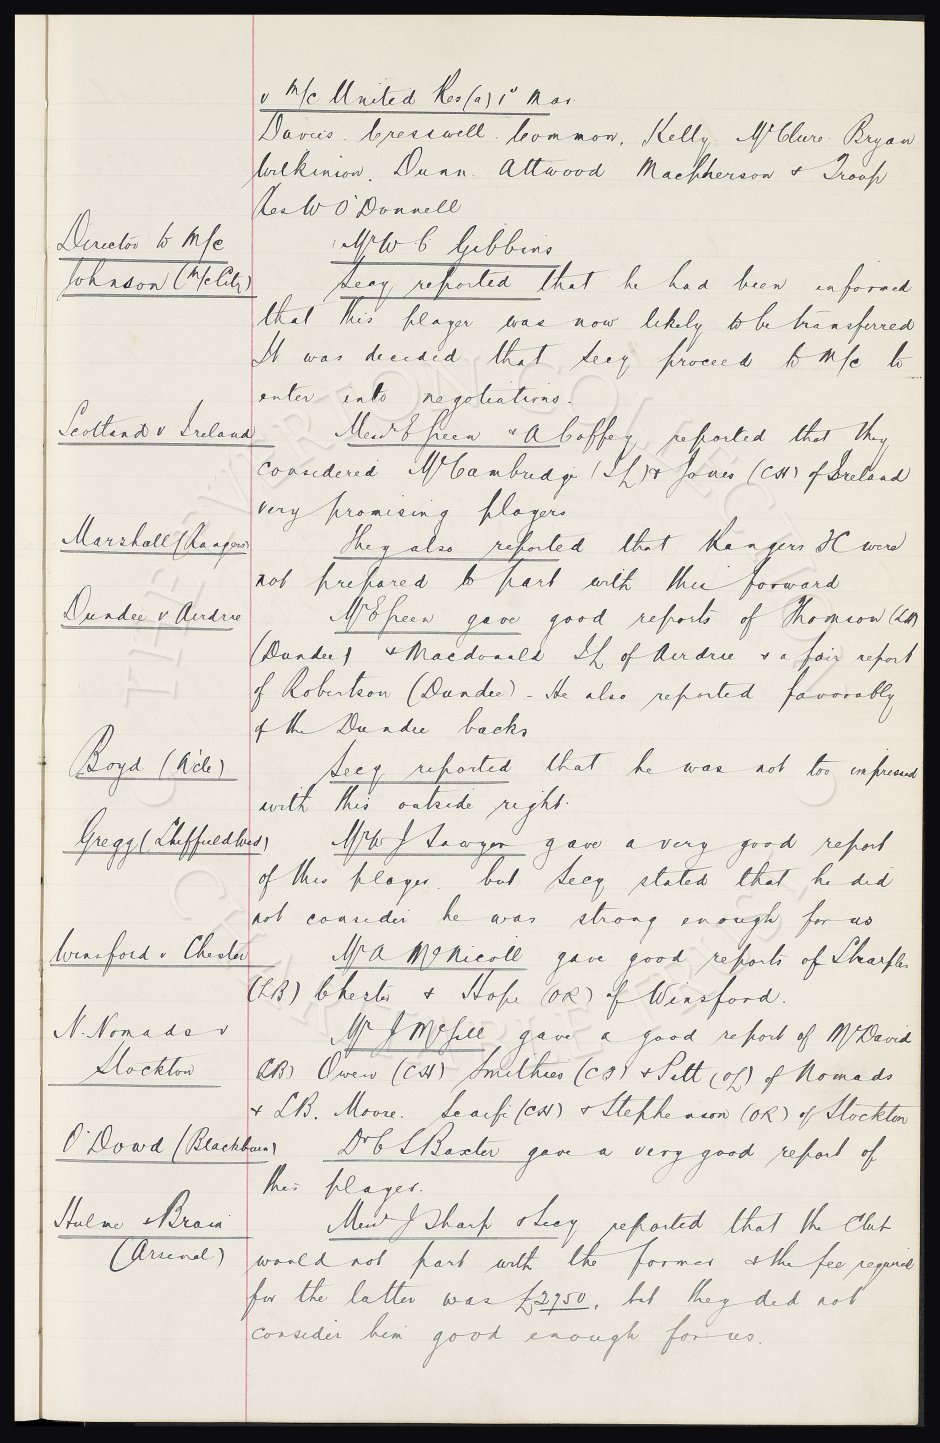 v M/c United Res (a) 1st Mar
Davies. Cresswell. Common. Kelly. McClure. Bryan
Wilkinson. Dunn. Attwood Macpherson & Troup
Res W O'Donnell
Director to M/c
Mr W C Gibbins
Johnson (M/c City)
Secy reported that he had been informed
that this player was now likely to be transferred
It was decided that Secy proceed to M/c to
enter into negotiations.
Scotland v Ireland
Messrs E Green & A Coffey reported that they
considered McCambridge (IL) & Jones (CH) of Ireland
very promising players
Marshall (Rangers)
They also reported that Rangers FC were
not prepared to part with this forward
Dundee v Airdrie
Mr E Green gave good reports of Thomson (LH)
(Dundee) & Macdonald IL of Airdrie & a fair report
of Robertson (Dundee) - He also reported favorably
of the Dundee backs
Boyd (A'cle)
Secy reported that he was not too impressed
with this outside right.
Gregg (Sheffield Wed)
Mr W J Sawyer gave a very good report
of this player. but Secy stated that he did
not consider he was strong enough for us
Winsford v Chester
Mr A McNicoll gave good reports of Sharples
(LB) Chester & Hope (OR) of Winsford.
N. Nomads v
Mr J McGill gave a good report of McDavid
Stockton
Owen (CH) Smithies (CF) & Pitt (OL) of Nomads
& LB. Moore. Scaife (CH) & Stephenson (OR) of Stockton
O'Dowd (Blackburn)
Dr C S Baxter gave a very good report of
this player.
Hulme & Brain
Messrs J Sharp & Secy reported that the Club
(Arsenal)
would not part with the former & the fee required
for the latter was £2750, but they did not
consider him good enough for us.
THE EVERTON COLLECTION
CHARITABLE TRUST